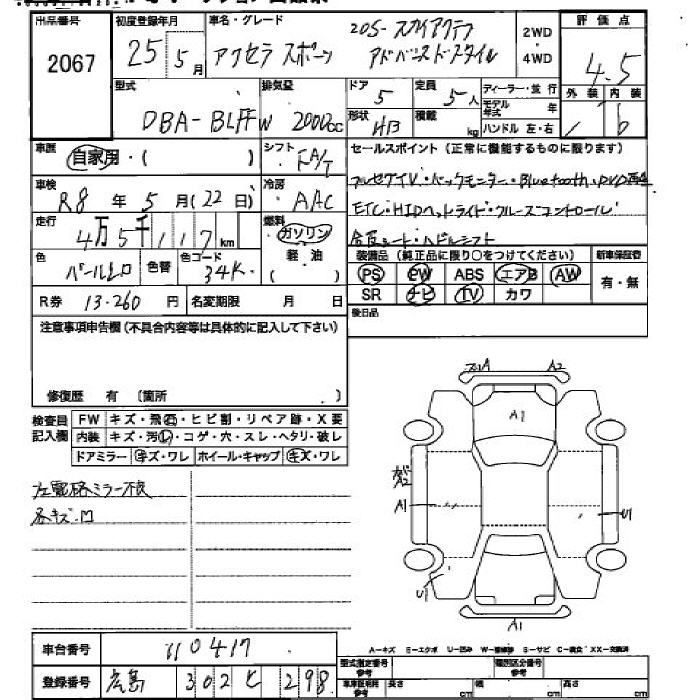 出品番号
2067
初度登録年月
25年 5月
車名・グレード
アクセラ スポーツ
20S-スカイアクティブ
2WD
・
4WD
評価点
4.5
外装 内装
6
型式
DBA-
排気量
2000cc
ドア
5
形状
HB
定員
5人
積載
kg
ディーラー・並行
モデル年式 年
ハンドル 左・右
車歴
自家用・( )
シフト
FA/T
セールスポイント(正常に機能するものに限ります)
フルセグTV・バックモニター・Bluetooth・DVD再生
ETC・HIDヘッドライト・クルーズコントロール
車検
R8年 5月(22日)
冷房
AAC
走行
4万5千117km
燃料
ガソリン
軽・油
( )
色
パールシロ
色替
色コード
34K
装備品(純正品に限り○をつけてください)
新車保証書
PS PW ABS エアB AW
SR ナビ TV カワ
有・無
R券 13.260円
名変期限 月 日
後日品
注意事項申告欄(不具合内容等は具体的に記入して下さい)
修復歴 有 〔箇所 〕
検査員記入欄
FW キズ・飛石・ヒビ割・リペア跡・X要
内装 キズ・汚レ・コゲ・穴・スレ・ヘタリ・破レ
ドアミラー キズ・ワレ ホイール・キャップ キズ・ワレ
各キズ・凹
A2
A1
A2
A1
U1
U1
A1
車台番号
110417
登録番号
広島 302 ヒ 298
A－キズ E－エクボ U－凹み W－補修跡 S－サビ C－腐食 XX－交換済
型式指定番号
類別区分番号
長さ cm 幅 cm 高さ cm